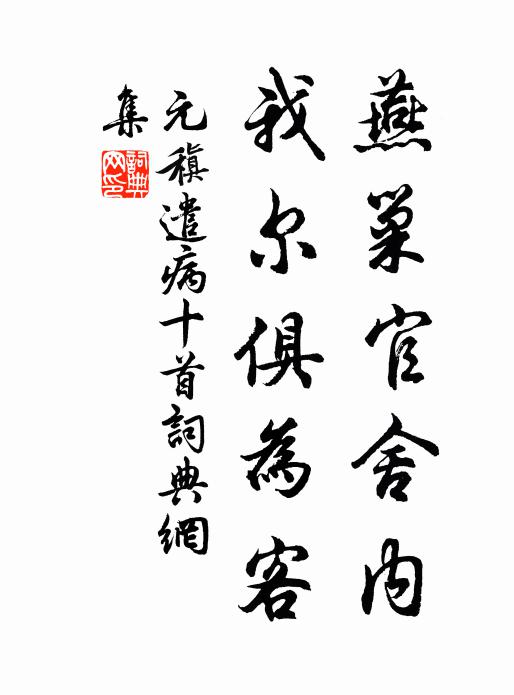 燕巢官舍內
我尔俱為客
元稹遣病十首詞典網
集
詞典网印